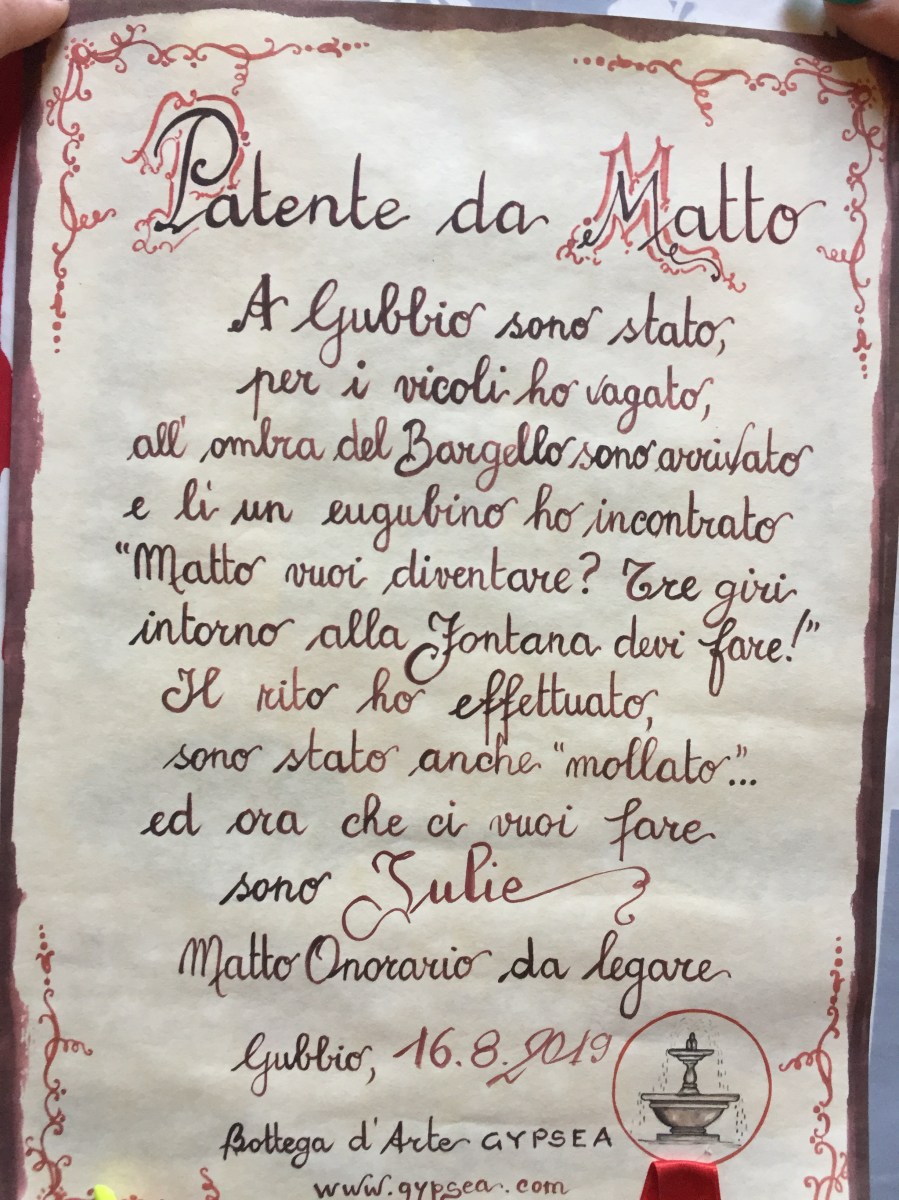 Patente da Matto
A Gubbio sono stato,
per i vicoli ho vagato,
all' ombra del Bargello sono arrivato
e li un eugubino ho incontrato
“Matto vuoi diventare? Tre giri
intorno alla Fontana devi fare!”
Il rito ho effettuato,
sono stato anche “mollato”...
ed ora che ci vuoi fare
sono Julie
Matto Onorario da legare
Gubbio, 16.8.2019
Bottega d'Arte GYPSEA
www.gypsea.com